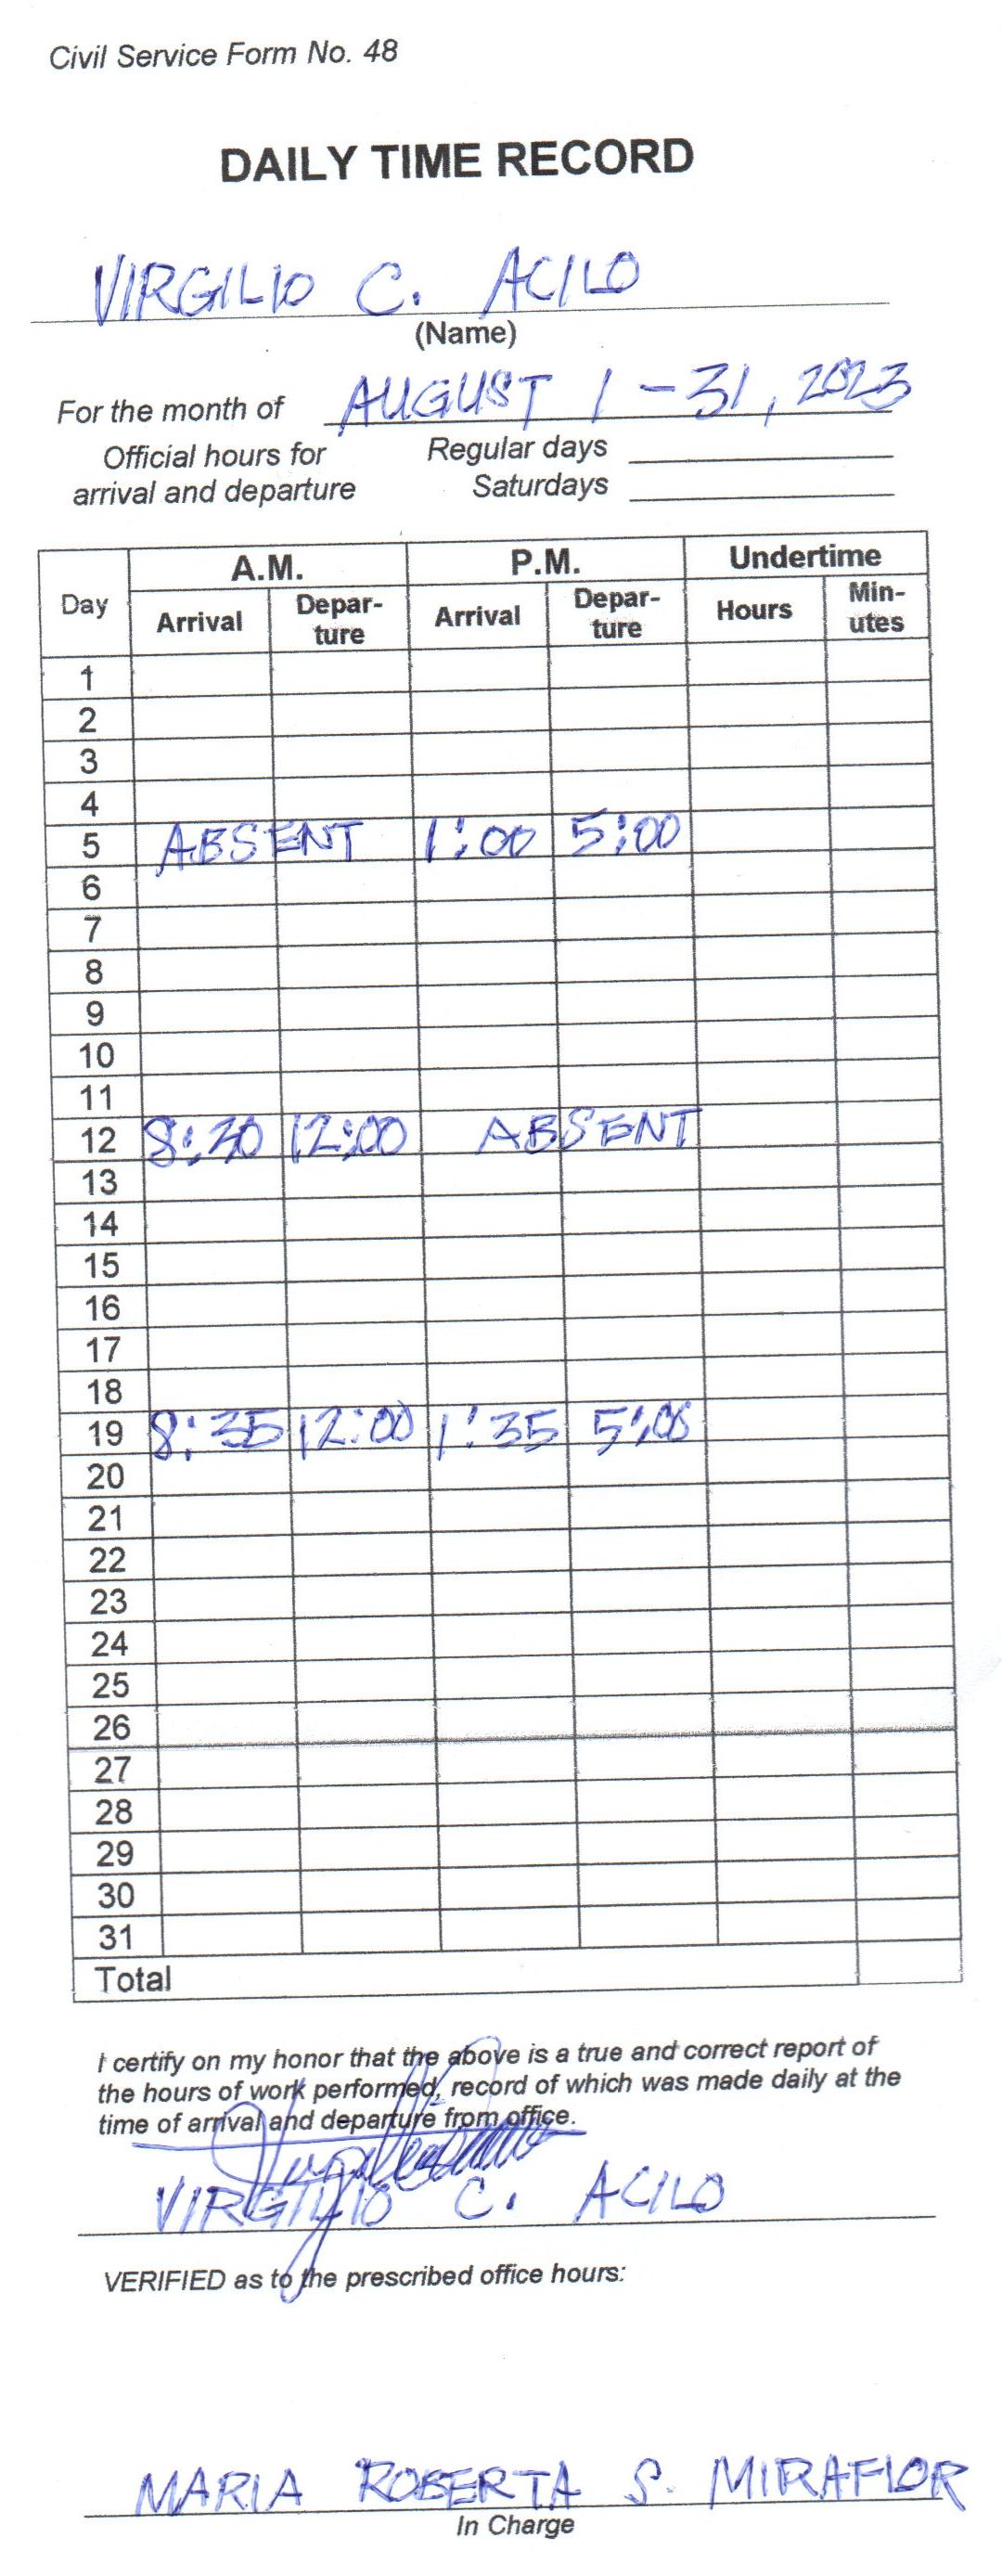 Civil Service Form No. 48
DAILY TIME RECORD
VIRGILIO C. ACILO
(Name)
For the month of AUGUST 1-31, 2023
Official hours for Regular days
arrival and departure Saturdays
Day A.M. P.M. Undertime
Arrival Depar-ture Arrival Depar-ture Hours Min-utes
1
2
3
4
5 ABSENT 1:00 5:00
6
7
8
9
10
11
12 12:00 ABSENT
13
14
15
16
17
18
19 8:35 12:00 1:35
20
21
22
23
24
25
26
27
28
29
30
31
Total
I certify on my honor that the above is a true and correct report of
the hours of work performed, record of which was made daily at the
time of arrival and departure from office.
VIRGILIO C. ACILO
VERIFIED as to the prescribed office hours:
MARIA ROBERTA S. MIRAFLOR
In Charge